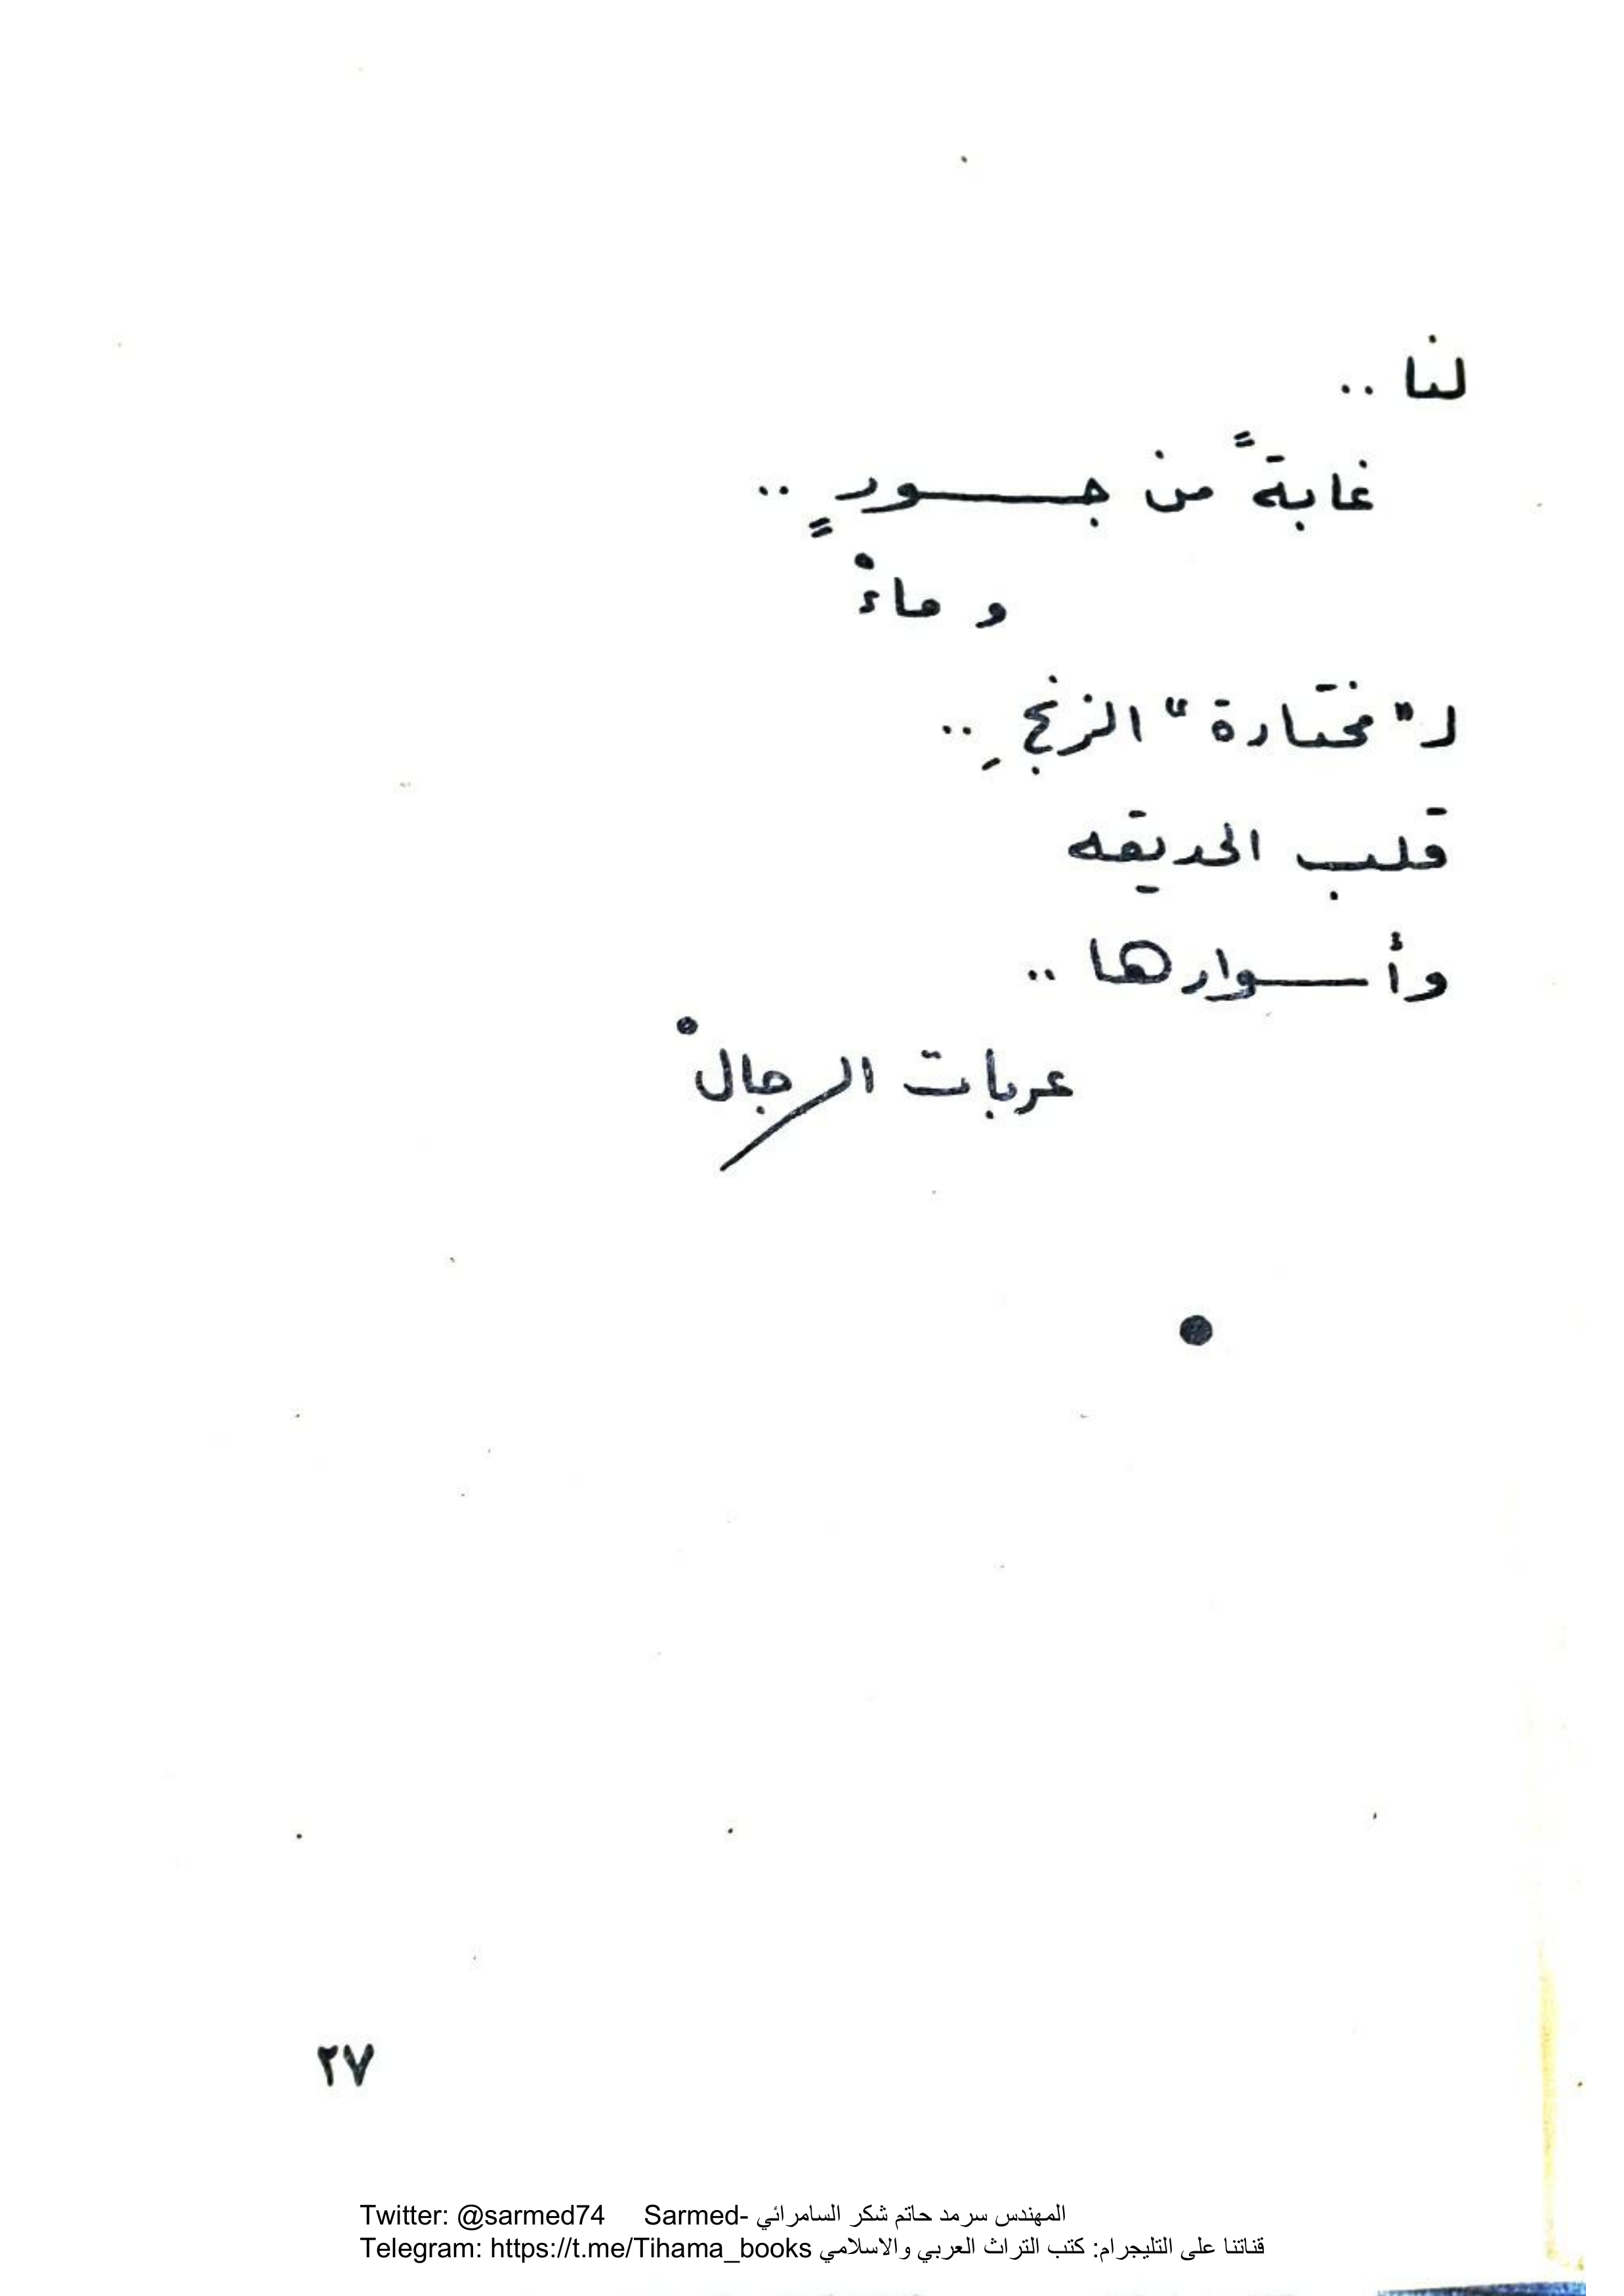 لنا ..
غابةً من جسورٍ ..
و ماءْ
لـ "مختارة" الزنجِ ..
قلب الحديقه
وأسوارها ..
عربات الرجالْ
●
٢٧
Twitter: @sarmed74 Sarmed- المهندس سرمد حاتم شكر السامرائي
Telegram: https://t.me/Tihama_books قناتنا على التليجرام: كتب التراث العربي والاسلامي